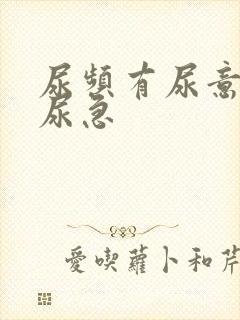 尿頻有尿意
尿急
愛喫蘿卜和芹